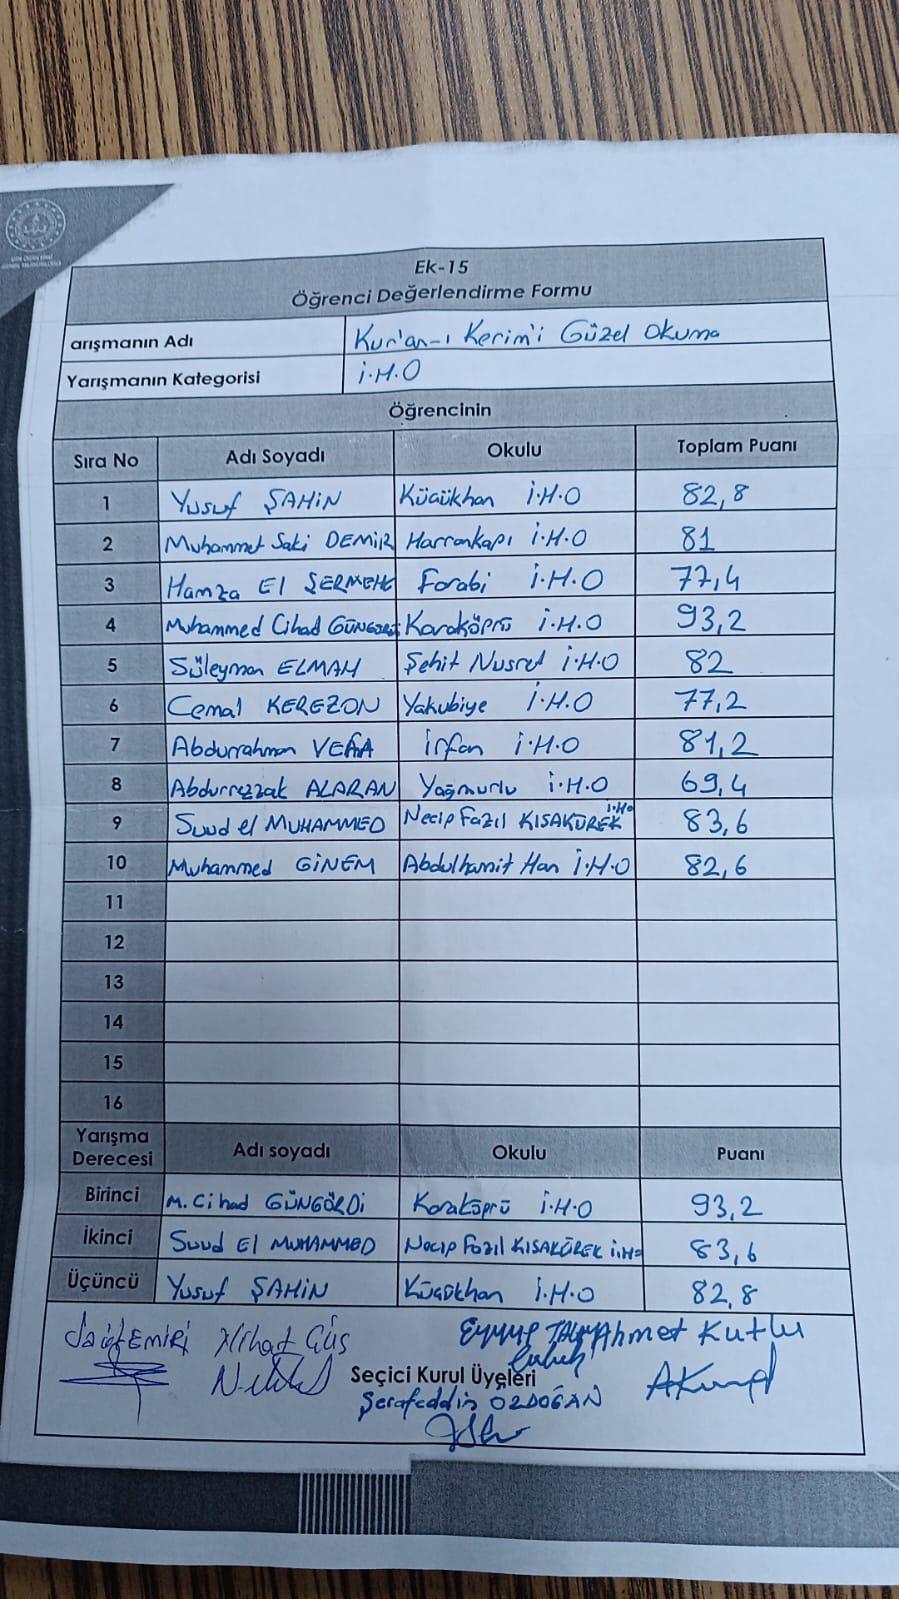 Ek-15
Öğrenci Değerlendirme Formu
arışmanın Adı Kur'an-ı Kerim'i Güzel Okuma
Yarışmanın Kategorisi İ.H.O
Öğrencinin
Sıra No Adı Soyadı Okulu Toplam Puanı
1 Yusuf ŞAHİN Küçükhan İ.H.O 82,8
2 Muhammet Saki DEMİR Harrankapı İ.H.O 81
3 Hamza El ŞERMEHL Farabi İ.H.O 77,4
4 Muhammed Cihad GÜNGÖRDİ Karaköprü İ.H.O 93,2
5 Süleyman ELMAH Şehit Nusret İ.H.O 82
6 Cemal KEREZON Yakubiye İ.H.O 77,2
7 Abdurrahman İrfan İ.H.O 81,2
8 Abdurrezzak ALARAN Yağmurlu İ.H.O 69,4
9 Suud el MUHAMMED Necip Fazıl KISAKÜREK İ.H.O 83,6
10 Muhammed GİNEM Abdulhamit Han İ.H.O 82,6
11
12
13
14
15
16
Yarışma Derecesi Adı soyadı Okulu Puanı
Birinci M. Cihad GÜNGÖRDİ Karaköprü İ.H.O 93,2
İkinci Suud El MUHAMMED Necip Fazıl KISAKÜREK İ.H.O 83,6
Üçüncü Yusuf ŞAHİN Küçükhan İ.H.O 82,8
Ahmet Kutlu
Seçici Kurul Üyeleri
Şerafeddin ÖZDOĞAN